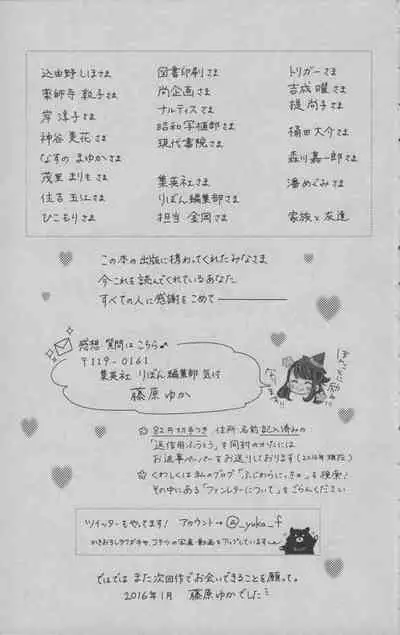 込由野しほさま
薬師寺 敦子さま
岸 淳子さま
神谷 美花さま
なすの まゆかさま
茂里 まりもさま
住吉 玉江さま
ひこもりさま
図書印刷さま
尚企画さま
ナルティスさま
昭和写植部さま
現代書院さま
集英社さま
りぼん編集部さま
担当 金岡さま
トリガーさま
吉成 曜さま
堤 尚子さま
桶田 大介さま
森川 嘉一郎さま
潘 めぐみさま
家族と友達
この本の出版に携わってくれたみなさま
今これを読んでくれているあなた
すべての人に感謝をこめて
感想・質問はこちら
〒119-0161
集英社 りぼん編集部 気付
藤原ゆか
ありがとうございました
82円切手つき 住所・名前記入済みの
「返信用ふうとう」を同封のかたには
お返事ペーパーをお送りしております(2016年現在)
くわしくは私のブログ「ふじわらにっき。」を検索!
その中にある「ファンレターについて」をごらんください
ツイッターもやってます! アカウント→@_yuka_f
かきおろしラクガキや、コチラの写真・動画をアップしています
ではでは また次回作でお会いできることを願って。
2016年1月 藤原ゆかでした